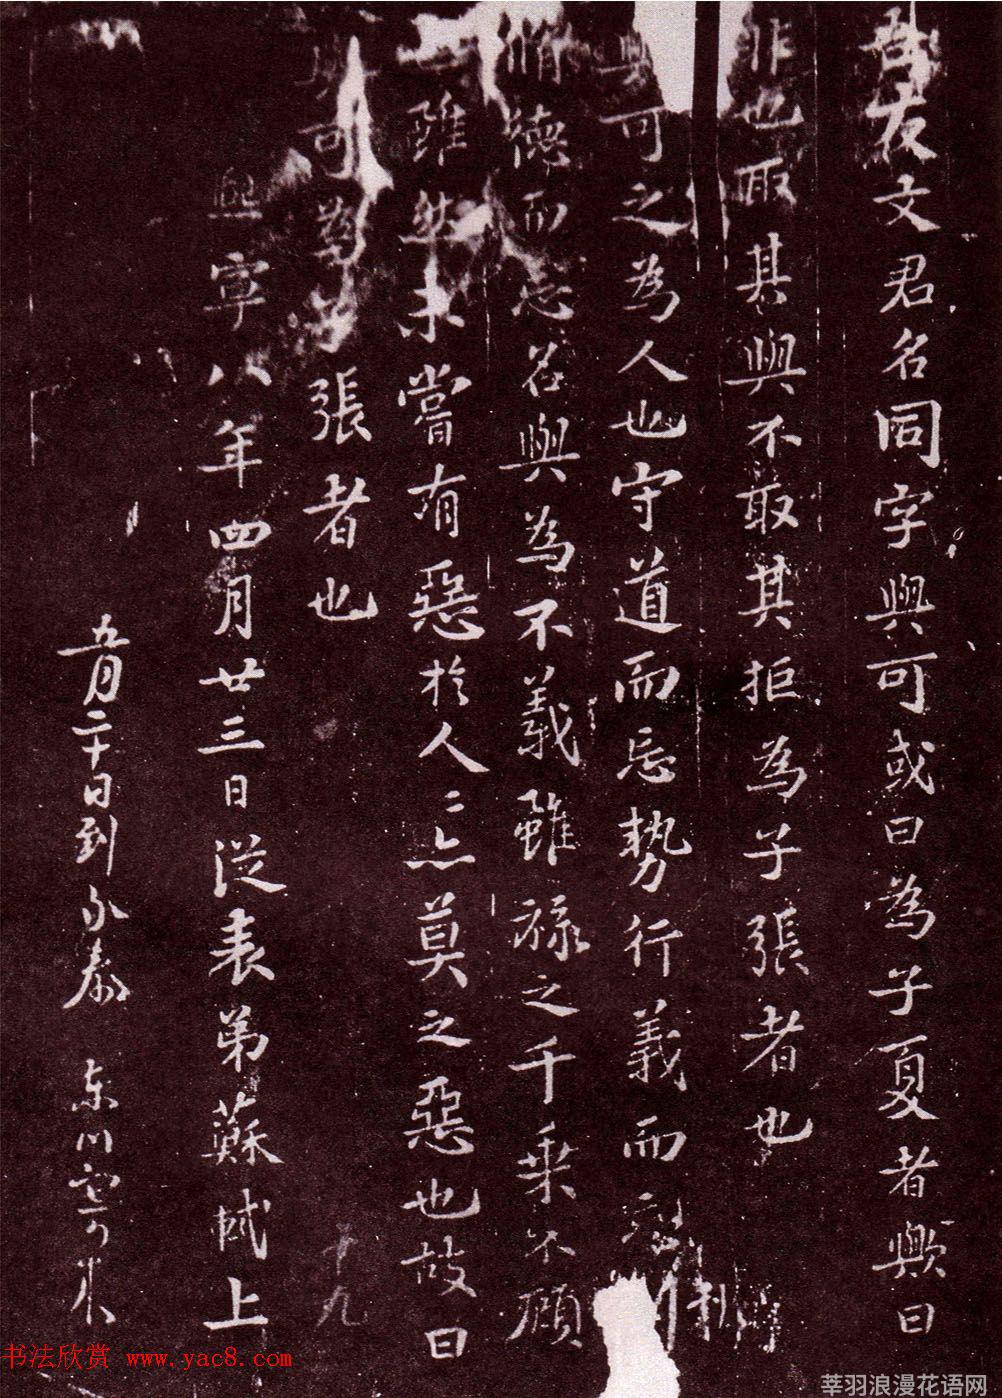 吾友文君名同字與可或曰為子夏者歟曰
非也取其與不取其拒為子張者也
與可之為人也守道而忘勢行義而忘利
脩德而忘名與為不義雖祿之千乘不顧
雖然未嘗有惡於人人亦莫之惡也故曰
與可為子張者也
熙寧八年四月廿三日從表弟蘇軾上
十九
五月二十日到
東川
书法欣赏 www.yac8.com
莘羽浪漫花语网